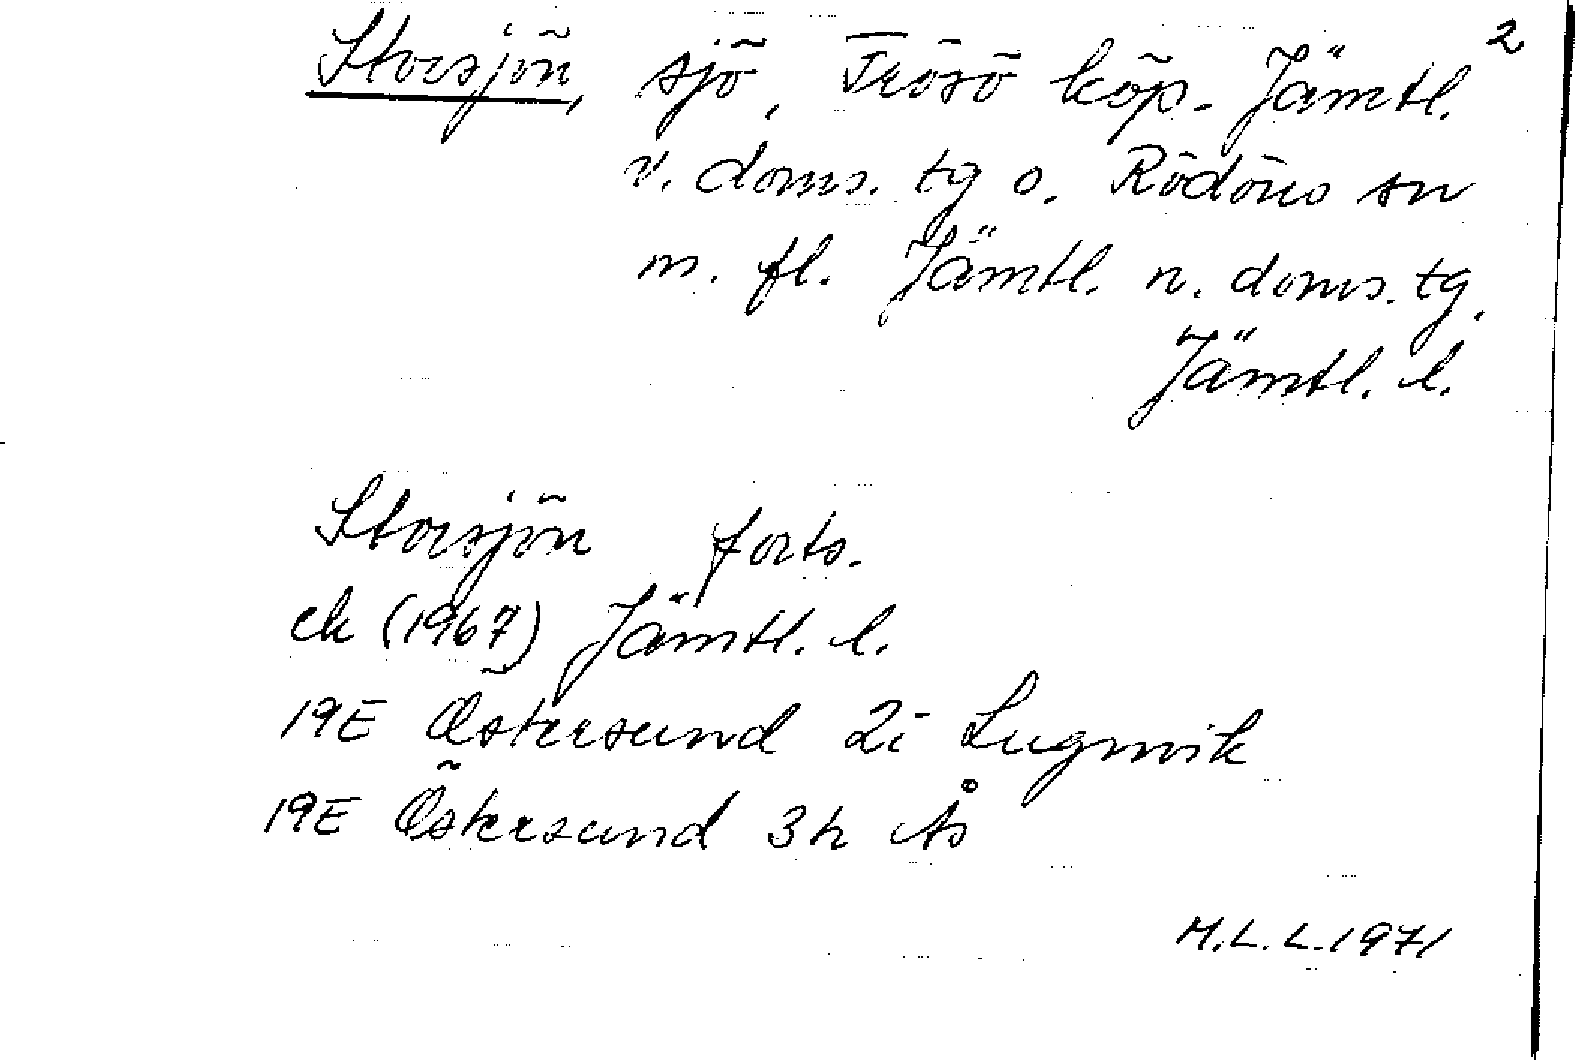 2
Storsjön, sjö, Frösö köp. Jämtl.
v. doms. tg o. Rödöns sn
m. fl. Jämtl. n. doms. tg.
Jämtl. l.
Storsjön forts.
ek (1967) Jämtl. l.
19E Östersund 2i Lugnvik
19E Östersund 3h Ås
M.L.L. 1971